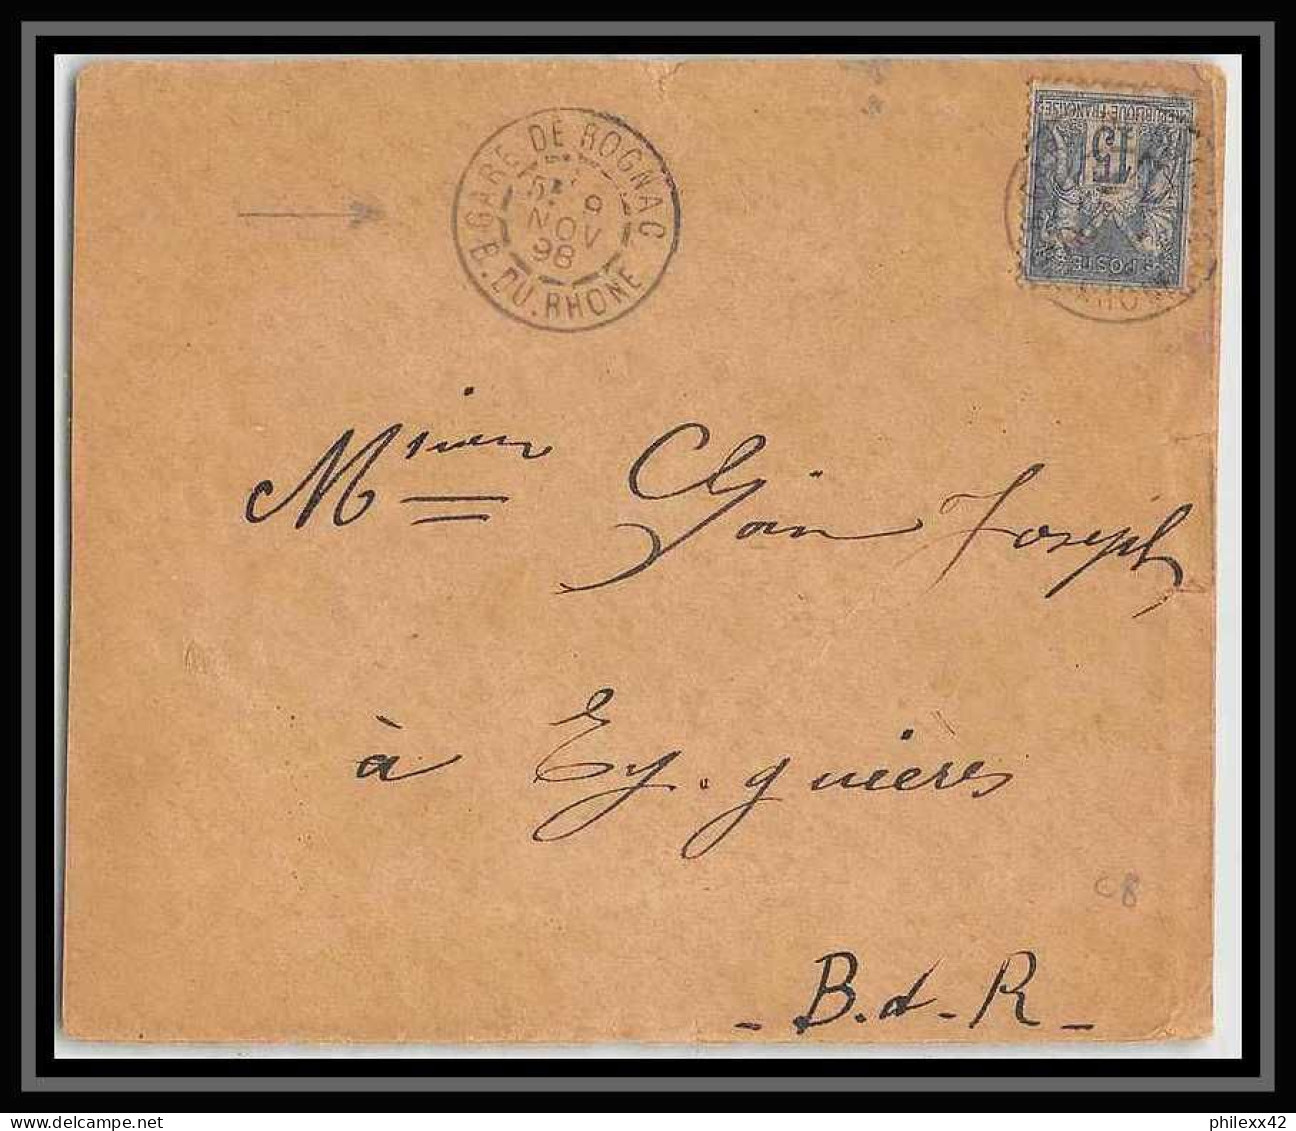 GARE DE ROGNAC
5E 9
NOV
98
B. DU. RHONE
REPUBLIQUE FRANÇAISE
15
POSTE
Msieur Joseph
à Ey.guières
C8
- B.d.R -
philexx42